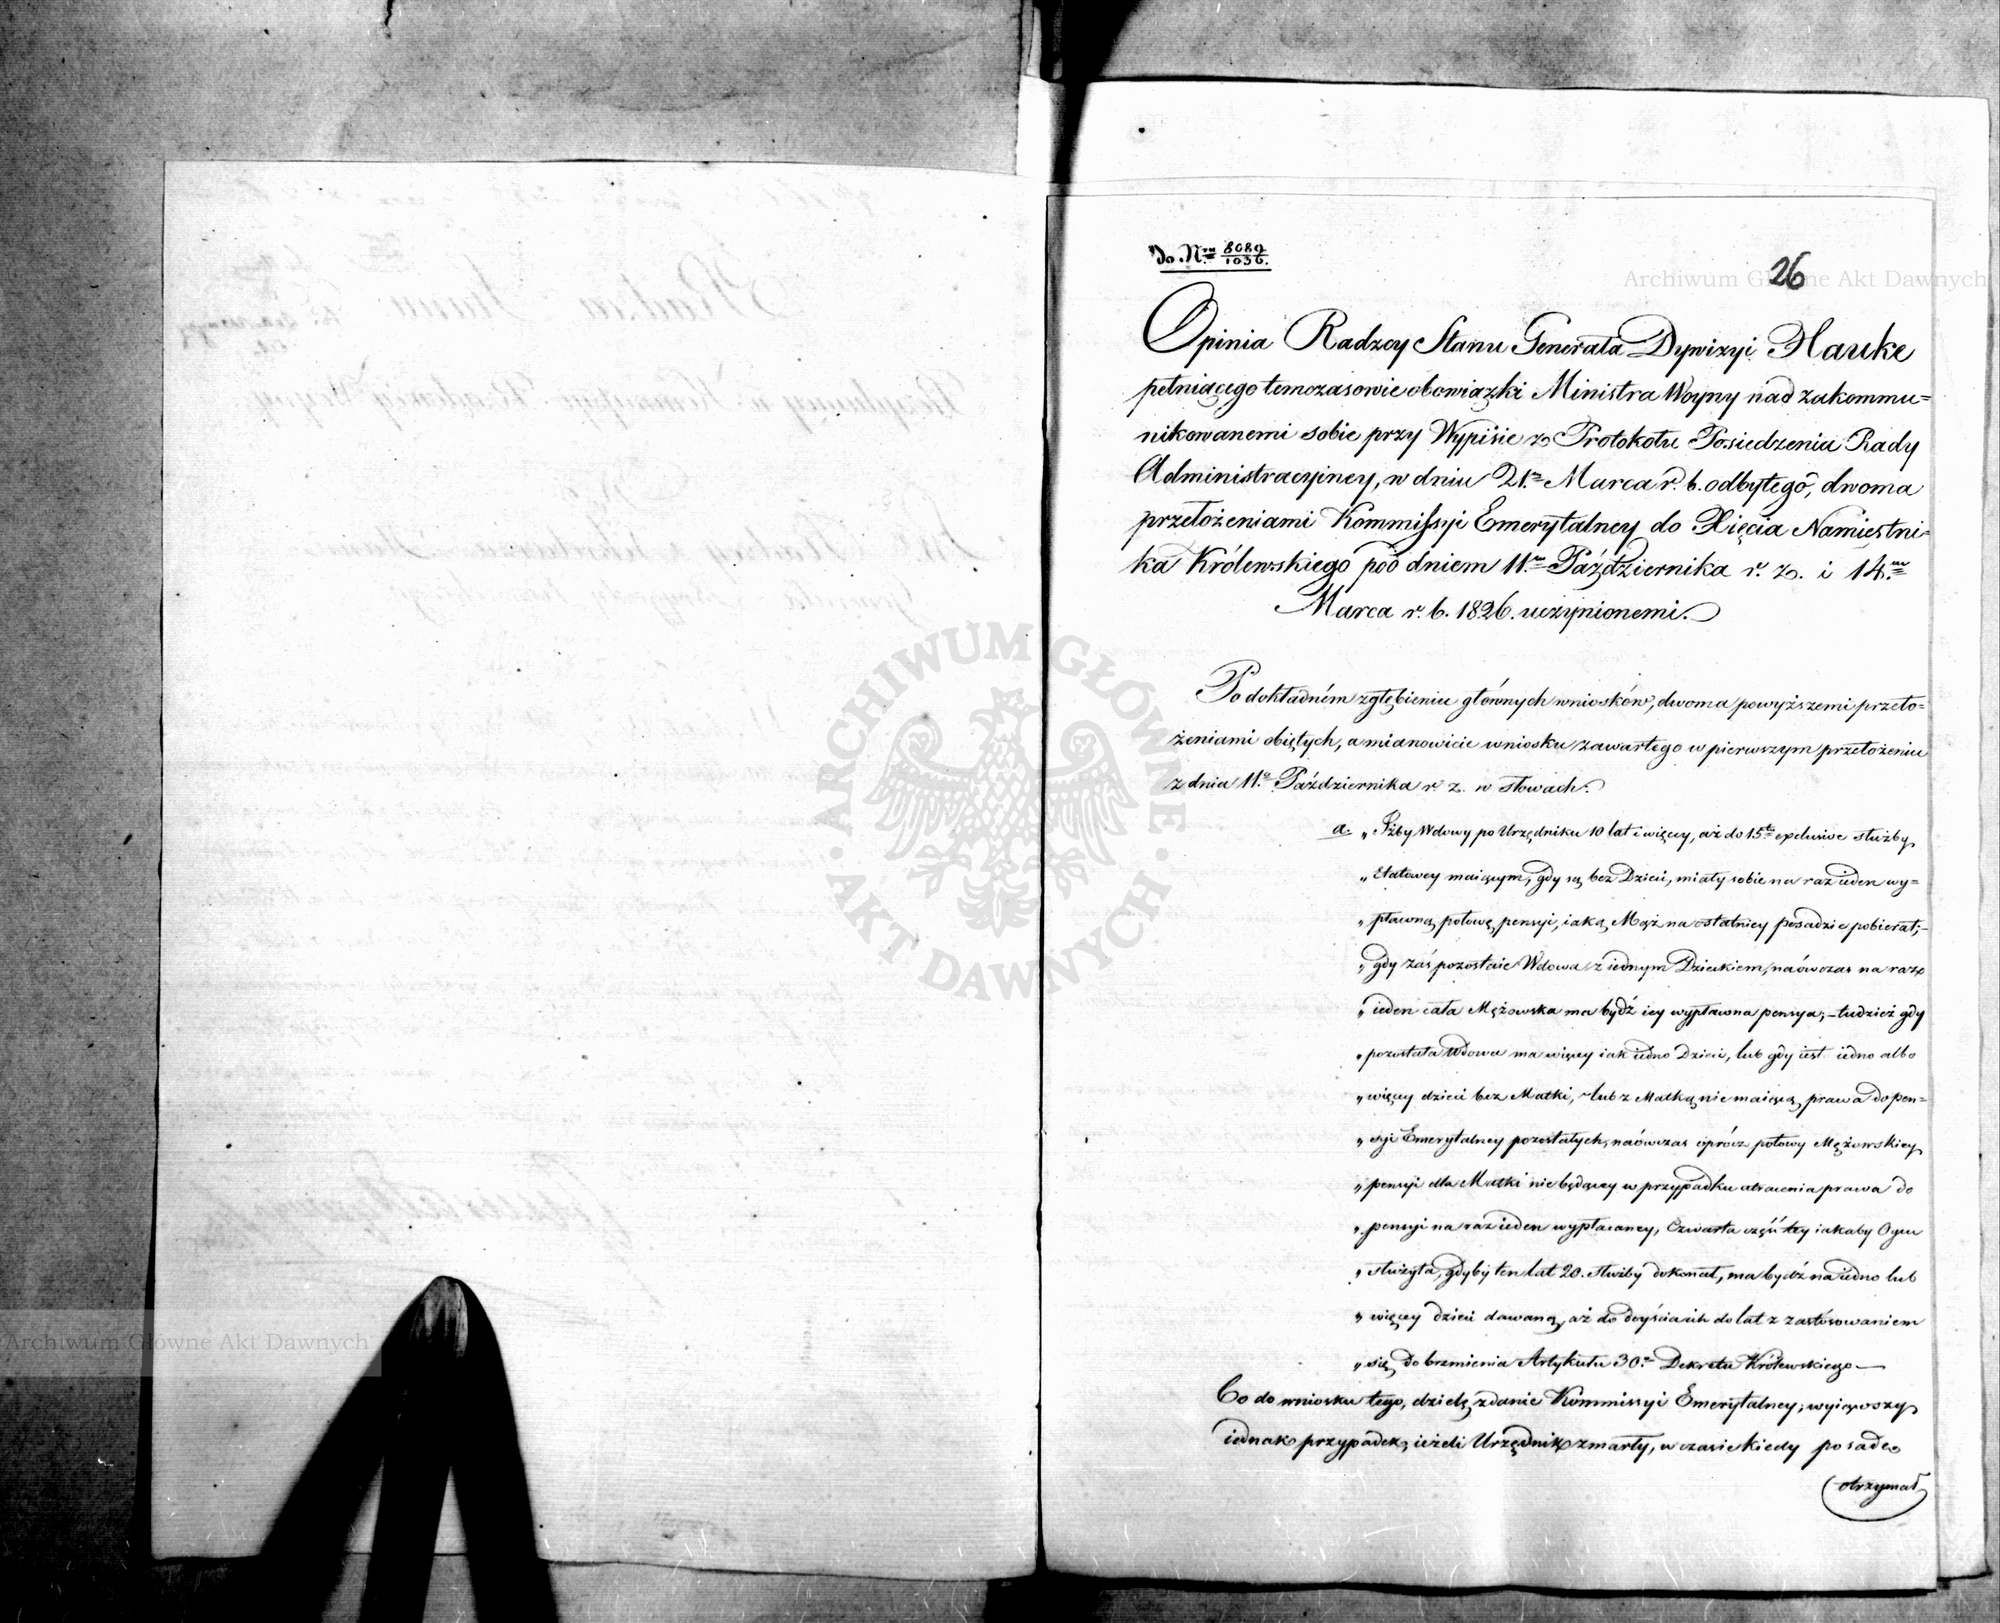 do Nru 8089/1036.
26
Opinia Radzcy Stanu Generała Dywizyi Hauke
pełniącego temczasowie obowiązki Ministra Woyny nad zakommu=
nikowanemi sobie przy Wypisie z Protokołu Posiedzenia Rady
Administracyiney, w dniu 21m Marca r. b. odbytego, dwoma
przełożeniami Kommissyi Emerytalney do Xięcia Namiestni=
ka Królewskiego pod dniem 11m Października r. z. i 14m
Marca r. b. 1826. uczynionemi.
Po dokładném zgłębieniu głównych wniosków, dwoma powyższemi przeło=
żeniami obiętych, a mianowicie wniosku zawartego w pierwszym przełożeniu
z dnia 11o Października r. z. w słowach:
a. „Iżby Wdowy po Urzędniku 10 lat i więcey, aż do 15tu exclusive służby
„Etatowey maiącym, gdy są bez Dzieci, miały sobie na raz ieden wy=
„płaconą połowę pensyi, iaką Mąż na ostatniey posadzie pobierał;—
„gdy zaś pozostaie Wdowa z iednym Dzieckiem, naówczas na raz
„ieden cała Mężowska ma bydź iey wypłacona pensya;—tudzież gdy
„pozostała Wdowa ma więcey iak iedno Dzieci, lub gdy iest iedno albo
„więcey dzieci bez Matki, lub z Matką nie maiącą prawa do pen=
„syi Emerytalney pozostałych, naówczas oprócz połowy Mężowskiey
„pensyi dla Matki nie będącey w przypadku utracenia prawa do
„pensyi na raz ieden wypłacaney, Czwarta część tey iakaby Oycu
„służyła, gdyby ten lat 20. służby dokonał, ma bydź na iedno lub
„więcey dzieci dawaną, aż do doyścia ich do lat z zastosowaniem
„się do brzmienia Artykułu 30.o Dekretu Królewskiego—
Co do wniosku tego, dzielę zdanie Kommissyi Emerytalney, wyiąwszy
iednak przypadek, ieżeli Urzędnik zmarły, w czasie kiedy posadę
otrzymał
ARCHIWUM GŁÓWNE
AKT DAWNYCH
Archiwum Główne Akt Dawnych
Archiwum Główne Akt Dawnych